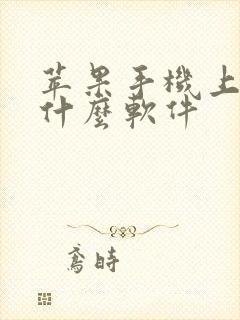 苹果手機上
什麼軟件
鳶時